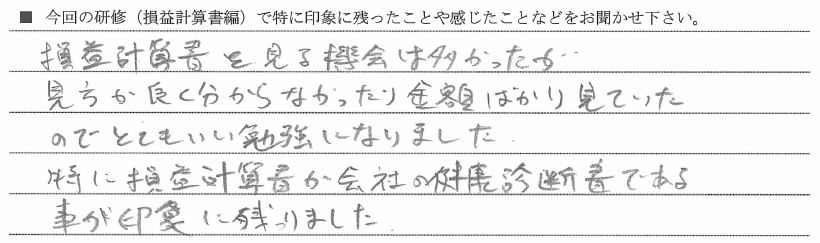 ■ 今回の研修（損益計算書編）で特に印象に残ったことや感じたことなどをお聞かせ下さい。
損益計算書を見る機会は多かったが…
見方が良く分からなかったり金額ばかり見ていた
のでとてもいい勉強になりました．
特に損益計算書が会社の健康診断書である
事が印象に残りました．